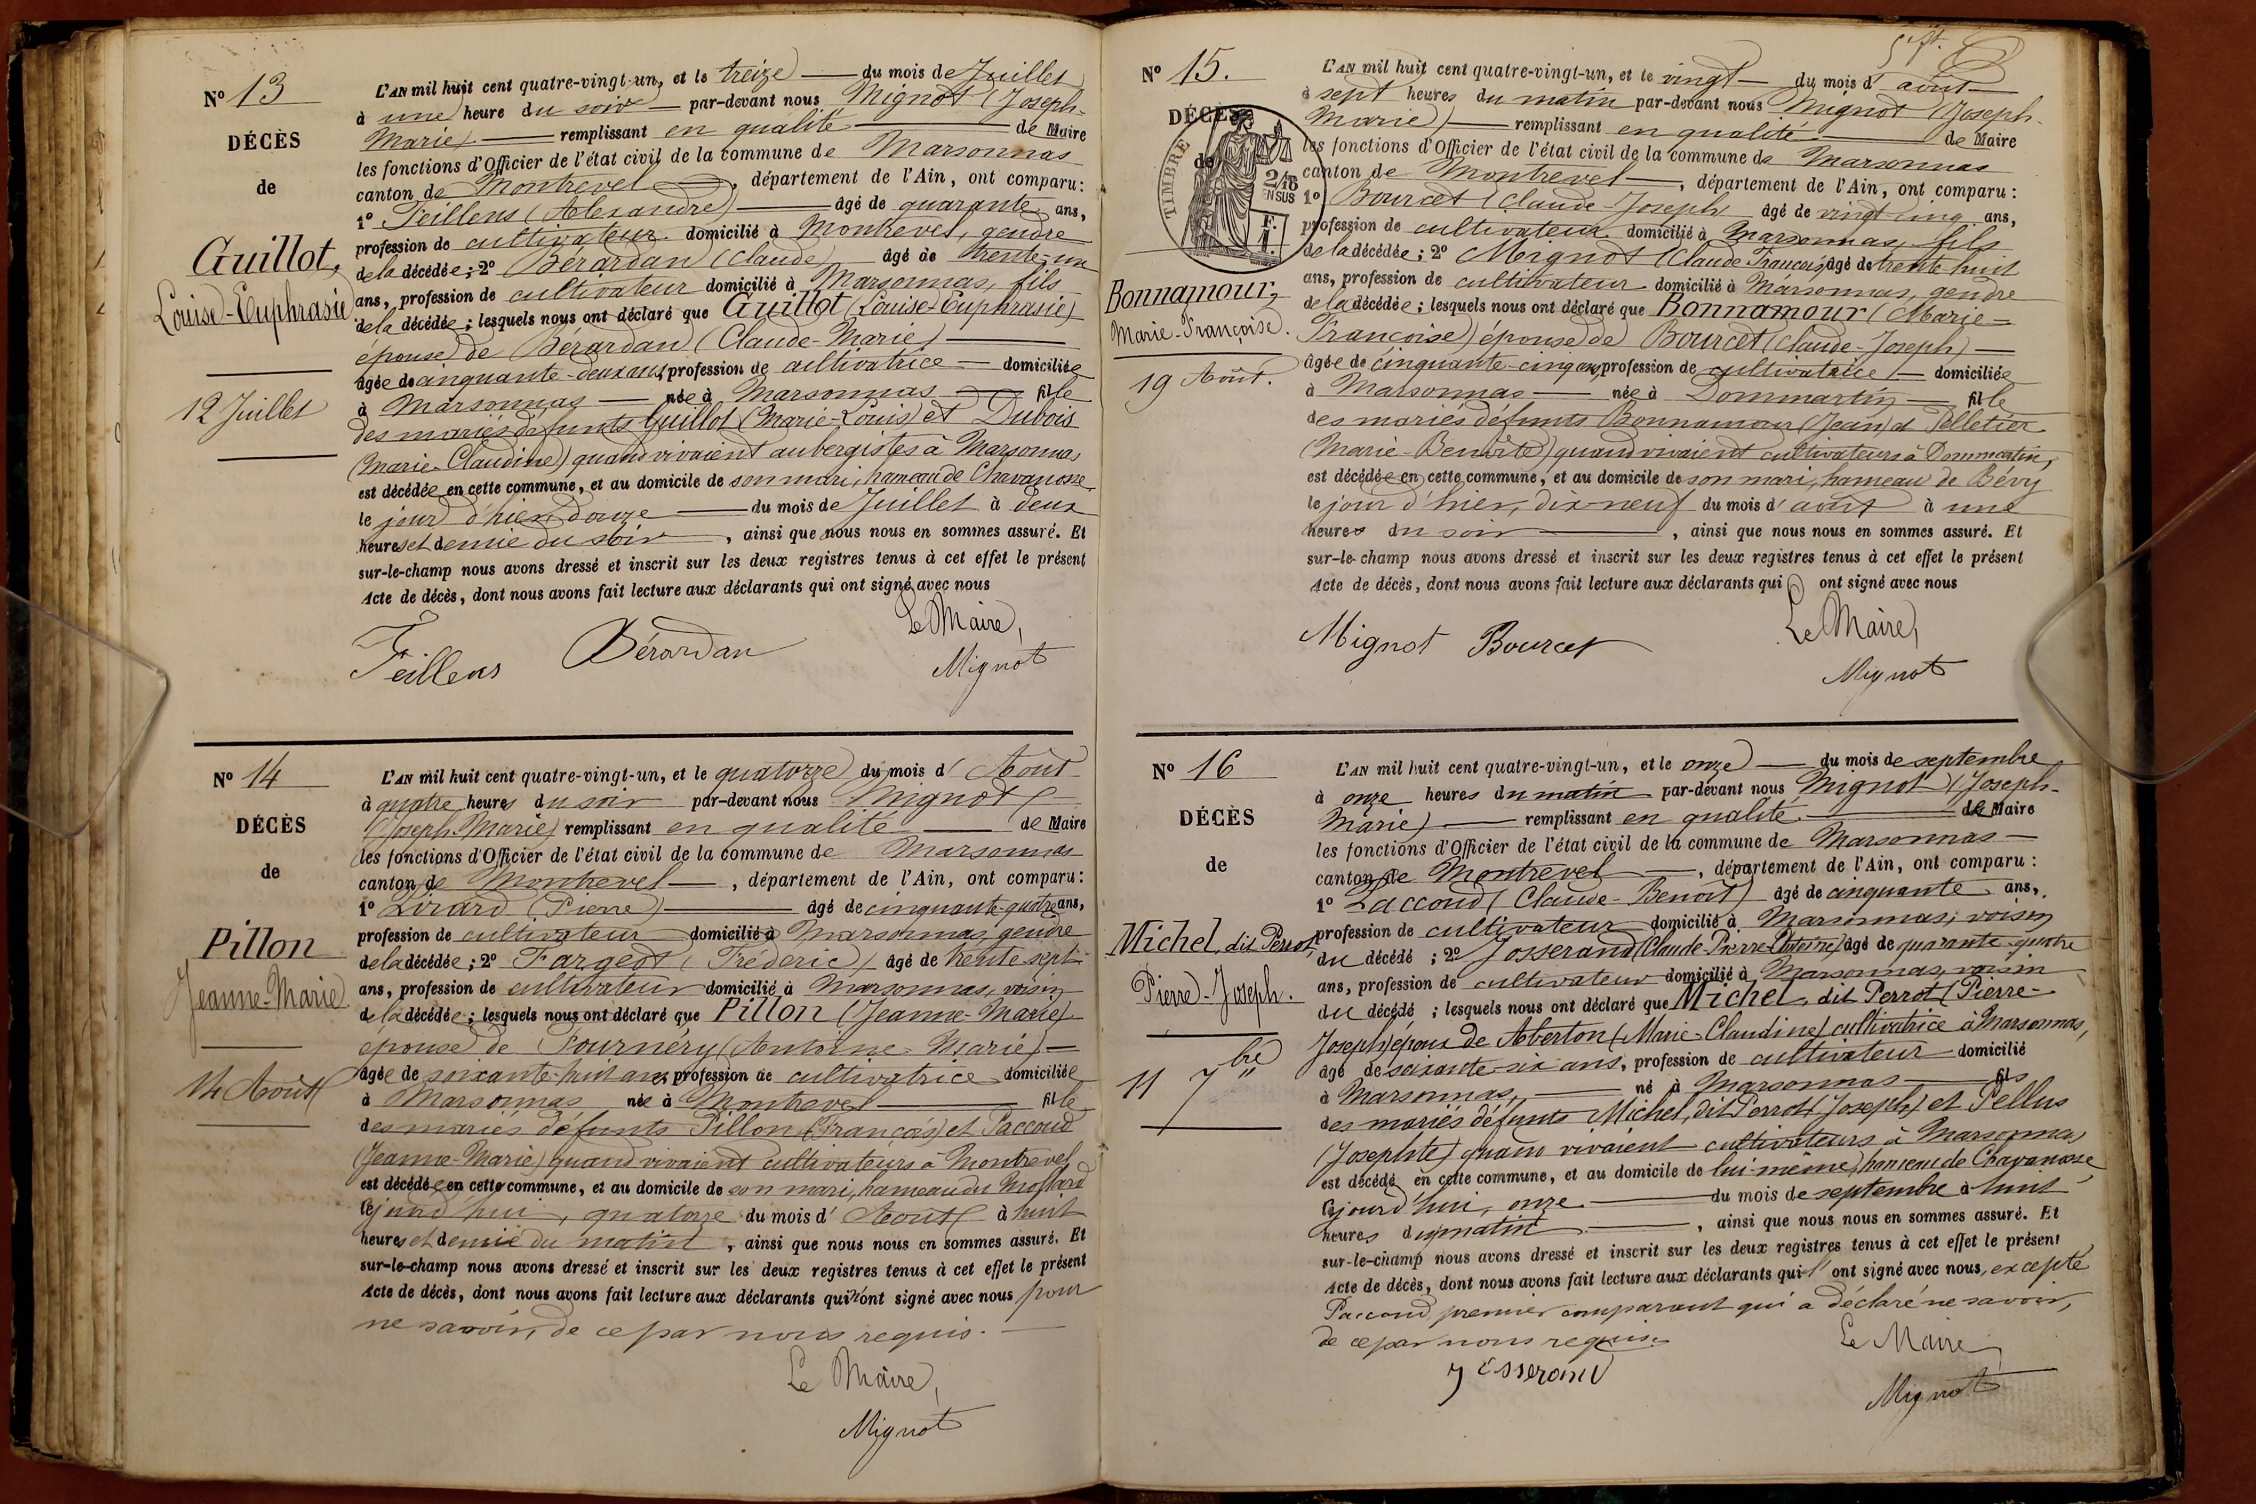 Nº 13
DÉCÈS
de
Guillot,
Louise-Euphrasie
12 Juillet
L'AN mil huit cent quatre-vingt-un, et le treize du mois de Juillet
à une heure du soir par-devant nous Mignot (Joseph-
Marie) remplissant en qualité de Maire
les fonctions d'Officier de l'état civil de la commune de Marsonnas
canton de Montrevel, département de l'Ain, ont comparu:
1º Teillens (Alexandre) âgé de quarante ans,
profession de cultivateur domicilié à Montrevel, gendre
de la décédée; 2º Bérardan (Claude) âgé de trente-un
ans, profession de cultivateur domicilié à Marsonnas, fils
de la décédée; lesquels nous ont déclaré que Guillot (Louise-Euphrasie)
épouse de Bérardan (Claude-Marie)
âgée de cinquante-deux ans, profession de cultivatrice domiciliée
à Marsonnas née à Marsonnas fille
des mariés défunts Guillot (Marie-Louis) et Dubois
(Marie-Claudine) quand vivaient aubergistes à Marsonnas
est décédée en cette commune, et au domicile de son mari, hameau de Chavanosse
le jour d'hier douze du mois de Juillet à deux
heures et demie du soir, ainsi que nous nous en sommes assuré. Et
sur-le-champ nous avons dressé et inscrit sur les deux registres tenus à cet effet le présent
Acte de décès, dont nous avons fait lecture aux déclarants qui ont signé avec nous
Le Maire,
Teillens Bérardan Mignot
Nº 14
DÉCÈS
de
Pillon
Jeanne-Marie
14 Août
L'AN mil huit cent quatre-vingt-un, et le quatorze du mois d'Août
à quatre heures du soir par-devant nous Mignot
(Joseph-Marie) remplissant en qualité de Maire
les fonctions d'Officier de l'état civil de la commune de Marsonnas
canton de Montrevel, département de l'Ain, ont comparu:
1º (Pierre) âgé de cinquante-quatre ans,
profession de cultivateur domicilié à Marsonnas, gendre
de la décédée; 2º Fargeot (Fréderic) âgé de trente-sept
ans, profession de cultivateur domicilié à Marsonnas, voisin
de la décédée; lesquels nous ont déclaré que Pillon (Jeanne-Marie)
épouse de Fournéry (Antoine-Marie)
âgée de soixante-huit ans, profession de cultivatrice domiciliée
à Marsonnas née à Montrevel fille
des mariés défunts Pillon (François) et Paccoud
(Jeanne-Marie) quand vivaient cultivateurs à Montrevel
est décédée en cette commune, et au domicile de son mari, hameau du Mollard
le jourd'hui, quatorze du mois d'Août à huit
heures et demie du matin, ainsi que nous nous en sommes assuré. Et
sur-le-champ nous avons dressé et inscrit sur les deux registres tenus à cet effet le présent
Acte de décès, dont nous avons fait lecture aux déclarants qui n'ont signé avec nous pour
ne savoir, de ce par nous requis.
Le Maire,
Mignot
Nº 15.
DÉCÈS
de
TIMBRE
2/10
EN SUS
F.
1.
Bonnamour,
Marie-Françoise.
19 Août.
L'AN mil huit cent quatre-vingt-un, et le vingt du mois d'août
à sept heures du matin par-devant nous Mignot (Joseph-
Marie) remplissant en qualité de Maire
les fonctions d'Officier de l'état civil de la commune de Marsonnas
canton de Montrevel, département de l'Ain, ont comparu:
1º Bourcet (Claude-Joseph) âgé de vingt cinq ans,
profession de cultivateur domicilié à Marsonnas, fils
de la décédée; 2º Mignot (Claude François) âgé de trente huit
ans, profession de cultivateur domicilié à Marsonnas, gendre
de la décédée; lesquels nous ont déclaré que Bonnamour (Marie-
Françoise) épouse de Bourcet (Claude-Joseph)
âgée de cinquante-cinq ans, profession de cultivatrice domiciliée
à Marsonnas née à Dommartin fille
des mariés défunts Bonnamour (Jean) et Pelletier
(Marie-Benoîte) quand vivaient cultivateurs à Dommartin,
est décédée en cette commune, et au domicile de son mari, hameau de Bévy
le jour d'hier, dix-neuf du mois d'août à une
heures du soir, ainsi que nous nous en sommes assuré. Et
sur-le-champ nous avons dressé et inscrit sur les deux registres tenus à cet effet le présent
Acte de décès, dont nous avons fait lecture aux déclarants qui ont signé avec nous
Le Maire,
Mignot Bourcet Mignot
Nº 16
DÉCÈS
de
Michel, dit Perrot,
Pierre-Joseph.
11 7bre
L'AN mil huit cent quatre-vingt-un, et le onze du mois de septembre
à onze heures du matin par-devant nous Mignot (Joseph-
Marie) remplissant en qualité de Maire
les fonctions d'Officier de l'état civil de la commune de Marsonnas
canton de Montrevel, département de l'Ain, ont comparu:
1º Paccoud (Claude-Benoit) âgé de cinquante ans,
profession de cultivateur domicilié à Marsonnas, voisin
du décédé; 2º Josserand (Claude-Pierre-Antoine) âgé de quarante-quatre
ans, profession de cultivateur domicilié à Marsonnas, voisin
du décédé; lesquels nous ont déclaré que Michel, dit Perrot (Pierre-
Joseph) époux de Aberton (Marie-Claudine) cultivatrice à Marsonnas,
âgé de soixante-six ans, profession de cultivateur domicilié
à Marsonnas, né à Marsonnas fils
des mariés défunts Michel, dit Perrot (Joseph) et Pellus
(Josephte) quand vivaient cultivateurs à Marsonnas
est décédé en cette commune, et au domicile de lui-même, hameau de Chavanosse,
le jourd'hui, onze du mois de septembre à huit
heures du matin, ainsi que nous nous en sommes assuré. Et
sur-le-champ nous avons dressé et inscrit sur les deux registres tenus à cet effet le présent
Acte de décès, dont nous avons fait lecture aux déclarants qui l'ont signé avec nous, excepté
Paccoud premier comparant qui a déclaré ne savoir,
de ce par nous requis.
Le Maire,
Josserand
Mignot